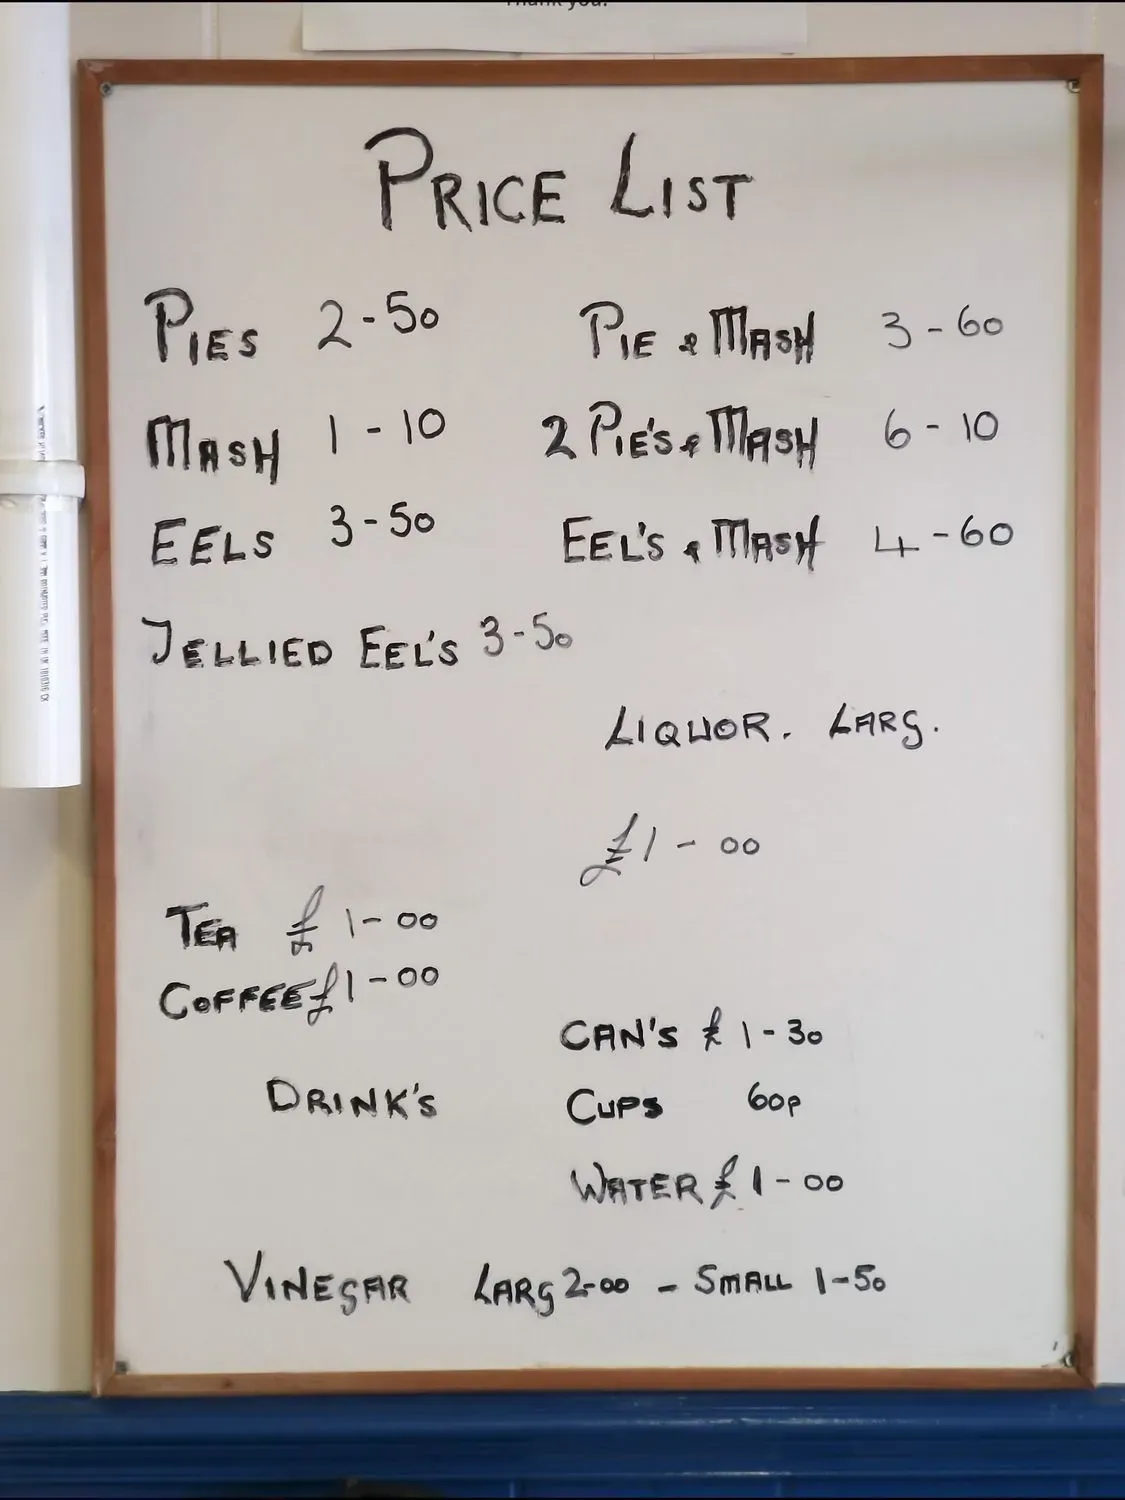 Thank you.
PRICE LIST
PIES 2-50
PIE & MASH 3-60
MASH 1-10
2 PIE'S & MASH 6-10
EELS 3-50
EEL'S & MASH 4-60
JELLIED EEL'S 3-50
LIQUOR. LARG.
£1-00
TEA £ 1-00
COFFEE £1-00
CAN'S £ 1-30
DRINK'S
CUPS 60p
WATER £ 1-00
VINEGAR LARG 2-00 - SMALL 1-50